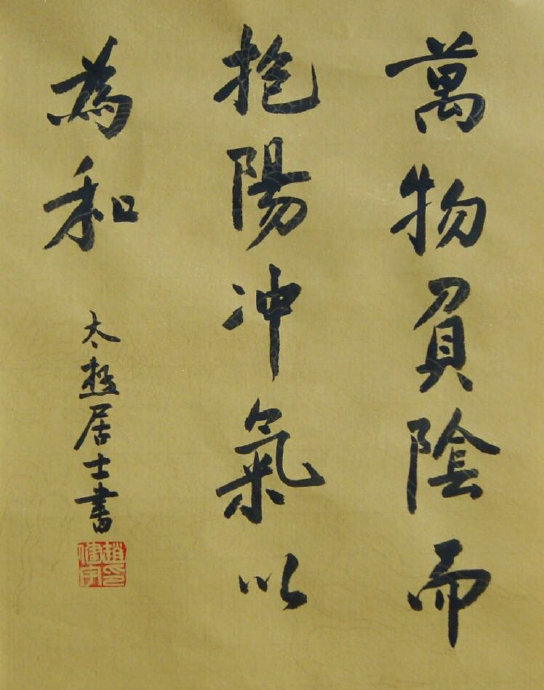 萬物負陰而
抱陽冲氣以
為和
太極居士書